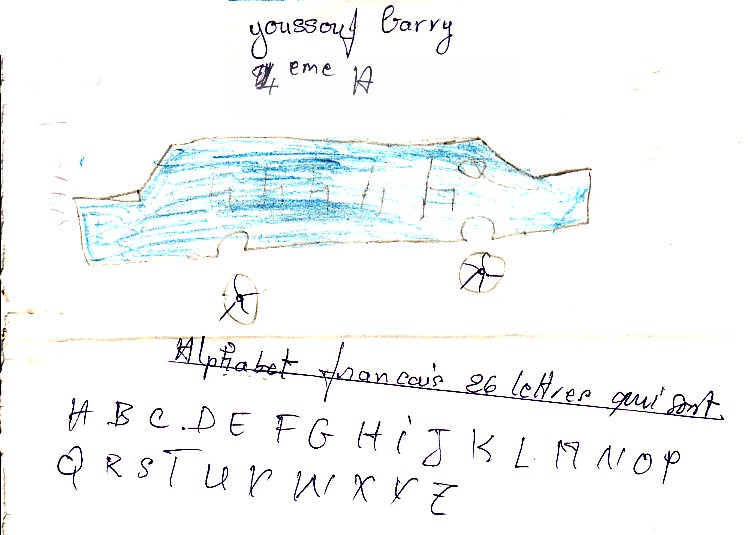 youssouf barry
4 eme A
Alphabet francais 26 lettres qui sont
A B C . D E F G H i J K L M N O P
Q R S T U V W X Y Z